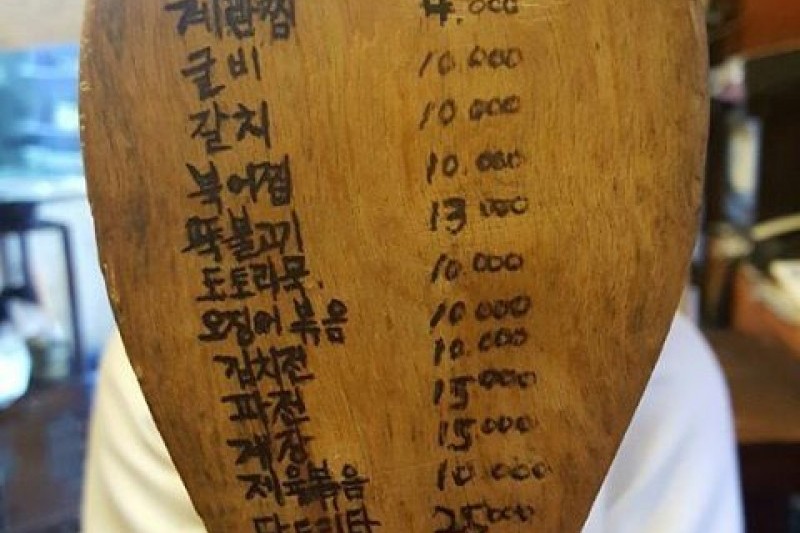 계란찜 4.000
굴비 10.000
갈치 10.000
북어찜 10.000
뚝불고기 13000
도토리묵. 10.000
오징어볶음 10000
김치전 10.000
파전 15000
게장 15.000
제육볶음 10.000
닭도리탕 25000